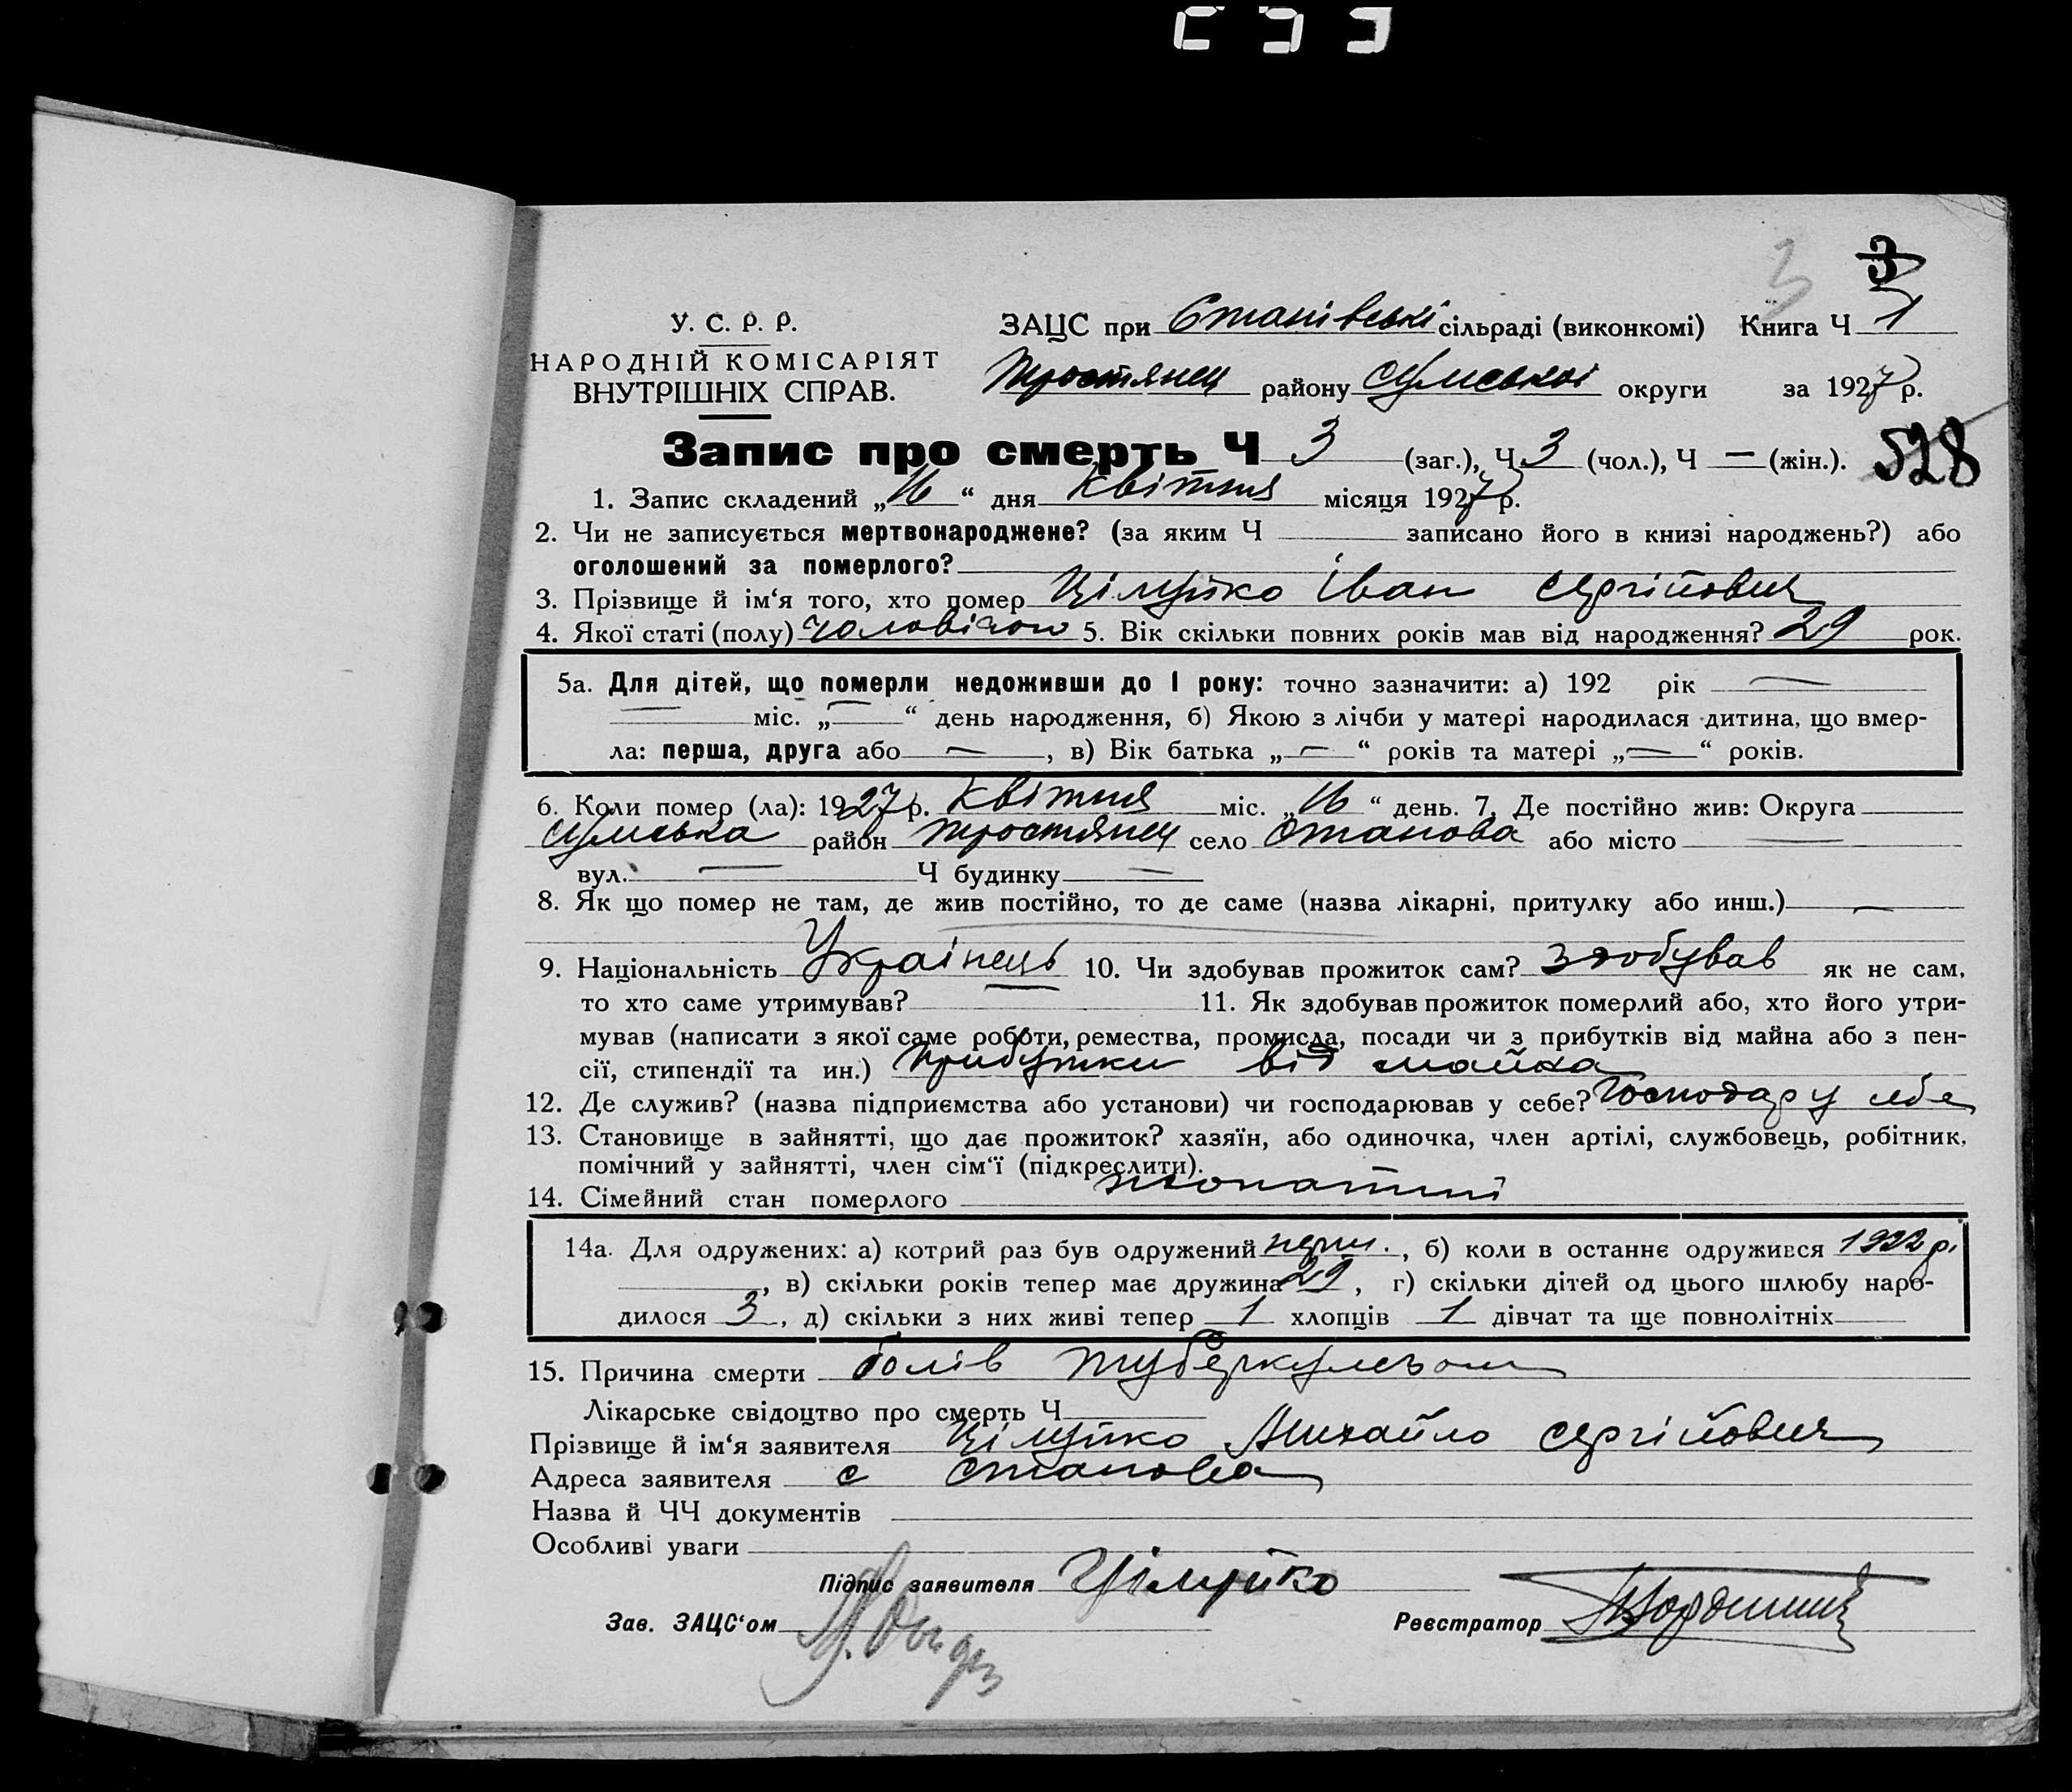 3 3
У. С. Р. Р.
НАРОДНІЙ КОМІСАРІЯТ
ВНУТРІШНІХ СПРАВ.
ЗАЦС при Станівські сільраді (виконкомі) Книга Ч 1
Тростянец району Сумської округи за 1927 р.
Запис про смерть Ч 3 (заг.), Ч 3 (чол.), Ч — (жін.). 528
1. Запис складений „16“ дня Квітня місяця 1927 р.
2. Чи не записується мертвонароджене? (за яким Ч записано його в книзі народжень?) або
оголошений за померлого?
3. Прізвище й ім‘я того, хто помер Цілуйко Іван Сергійович
4. Якої статі (полу) чоловічого 5. Вік скільки повних років мав від народження? 29 рок.
5а. Для дітей, що померли недоживши до 1 року: точно зазначити: а) 192 рік —
— міс. „—“ день народження, б) Якою з лічби у матері народилася дитина, що вмер-
ла: перша, друга або —, в) Вік батька „—“ років та матері „—“ років.
6. Коли помер (ла): 1927 р. Квітня міс. „16“ день. 7. Де постійно жив: Округа
Сумська район Тростянец село Станова або місто —
вул. — Ч будинку —
8. Як що помер не там, де жив постійно, то де саме (назва лікарні, притулку або инш.) —
9. Національність Українець 10. Чи здобував прожиток сам? здобував як не сам,
то хто саме утримував? — 11. Як здобував прожиток померлий або, хто його утри-
мував (написати з якої саме роботи, ремества, промисла, посади чи з прибутків від майна або з пен-
сії, стипендії та ин.) прибутки від майна
12. Де служив? (назва підприємства або установи) чи господарював у себе? Господар у себе
13. Становище в зайнятті, що дає прожиток? хазяїн, або одиночка, член артілі, службовець, робітник,
помічний у зайнятті, член сім‘ї (підкреслити).
14. Сімейний стан померлого жонатий
14а. Для одружених: а) котрий раз був одружений перш., б) коли в останнє одружився 1922 р.
, в) скільки років тепер має дружина 29, г) скільки дітей од цього шлюбу наро-
дилося 3, д) скільки з них живі тепер 1 хлопців 1 дівчат та ще повнолітніх
15. Причина смерти болів туберкульозом
Лікарське свідоцтво про смерть Ч
Прізвище й ім‘я заявителя Цілуйко Михайло Сергійович
Адреса заявителя с Станова
Назва й ЧЧ документів
Особливі уваги
Підпис заявителя Цілуйко
Зав. ЗАЦС‘ом
Реєстратор